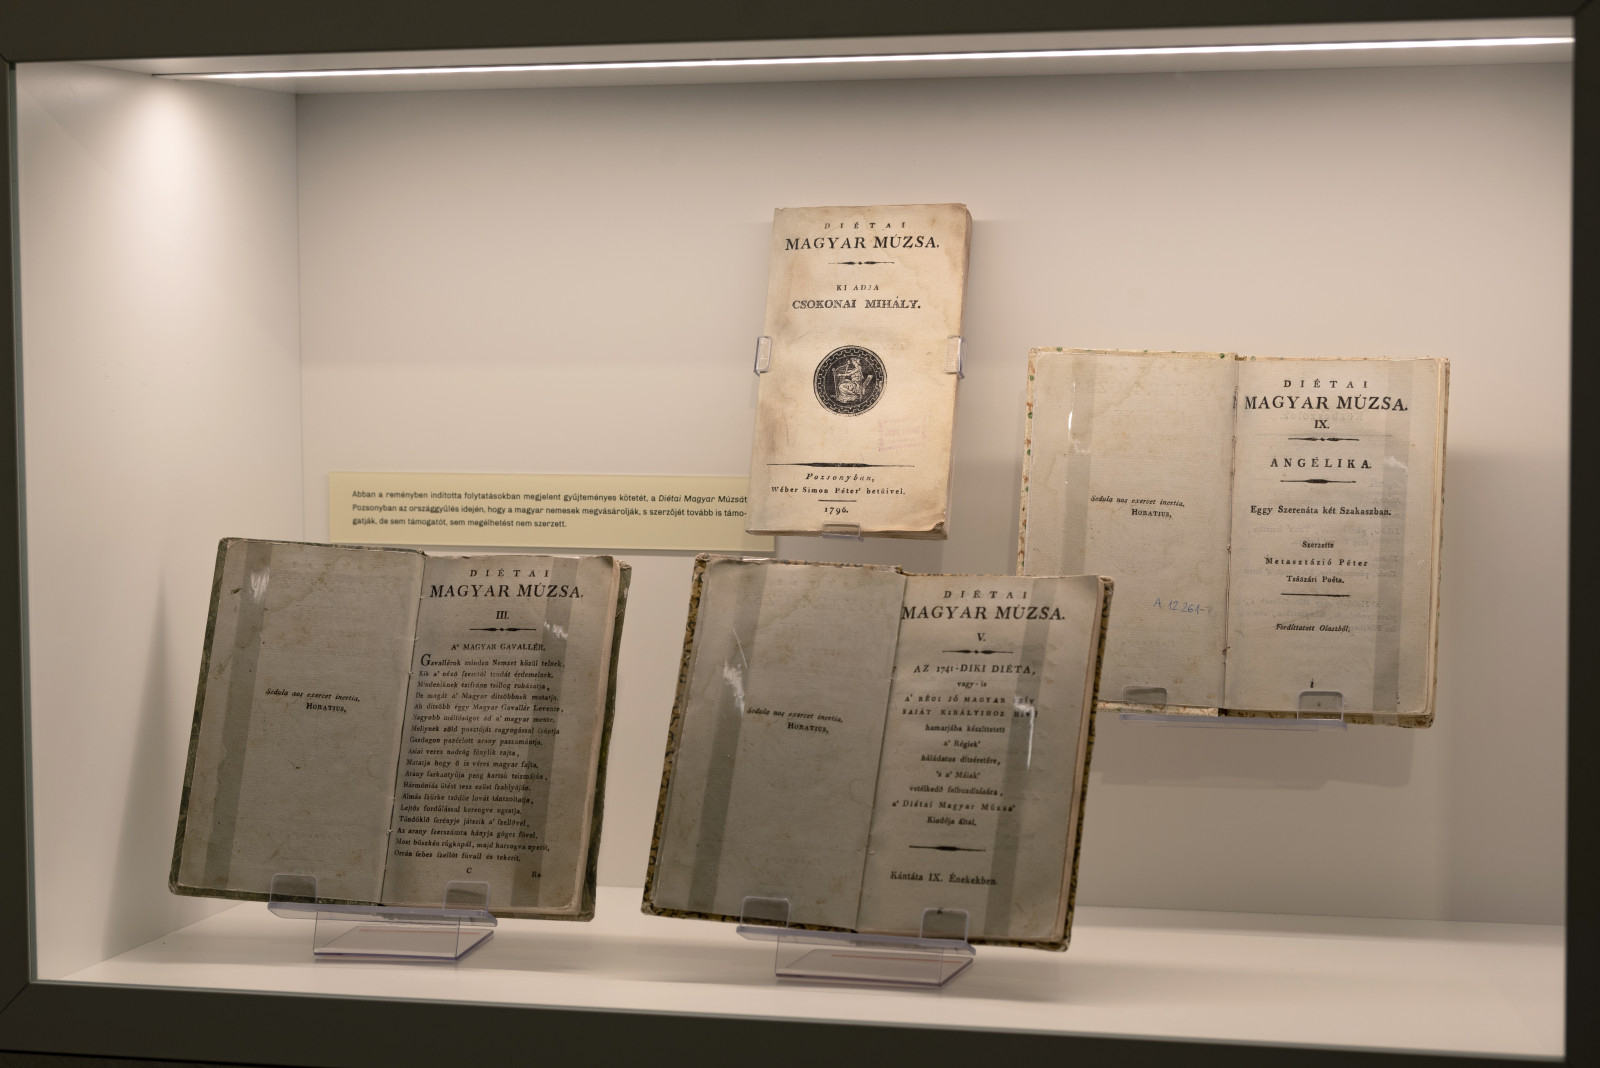 DIÉTAI
MAGYAR MÚZSA.
KI ADJA
CSOKONAI MIHÁLY.
Pozsonyban,
Wéber Simon Péter' betűivel.
1796.
Abban a reményben indította folytatásokban megjelent gyűjteményes kötetét, a Diétai Magyar Múzsát
Pozsonyban az országgyűlés idején, hogy a magyar nemesek megvásárolják, s szerzőjét tovább is támo-
gatják, de sem támogatót, sem megélhetést nem szerzett.
Sedula nos exercet inertia.
HORATIUS,
A 12.261
DIÉTAI
MAGYAR MÚZSA.
IX.
ANGÉLIKA.
Eggy Szerenáta két Szakaszban.
Szerzette
Metasztázió Péter
Tsászári Poéta.
Fordíttatott Olaszból.
Sedula nos exercet inertia.
HORATIUS,
DIÉTAI
MAGYAR MÚZSA.
III.
A' MAGYAR GAVALLÉR.
Gavallérok minden Nemzet közül telnek,
Kik a' néző szemtől tsudát érdemelnek.
Mindeniknek tsifránn tsillog ruházatja,
De magát a' Magyar ditsőbbnek mutatja.
Ah ditsőbb éggy Magyar Gavallér Levente,
Nagyobb méltóságot ád a' magyar mente,
Mellynek zőld posztóját ragyogással
Gazdagon pazérlott arany paszomántja.
veres nadrág fénylik rajta,
Mutatja hogy ő is véres magyar fajta.
Arany sarkantyúja peng kartsú tsizmáján,
Hármóniás ütést tesz ezüst szablyáján.
Almás szürke tsődör lovát tántzoltatja,
Lejtős fordúlással kerengve ugratja.
Tündöklő serényje játszik a' szellővel,
Az arany szerszámra hányja gőgös fővel.
Most büszkén rúgkapál, majd harsogva nyerít,
Orrán sebes szellőt fúvall és tekerít.
C
Sedula nos exercet inertia.
HORATIUS,
DIÉTAI
MAGYAR MÚZSA.
V.
AZ 1741-DIKI DIÉTA,
vagy-is
A' RÉGI JÓ MAGYAR SZÍV
SAJÁT KIRÁLYIHOZ
hamarjába készíttetett
a' Régiek'
háládatos ditséretére,
's a' Máiak'
vetélkedő felbuzdítására,
a' Diétai Magyar Múzsa'
Kiadója által.
Kántáta IX. Énekekben.